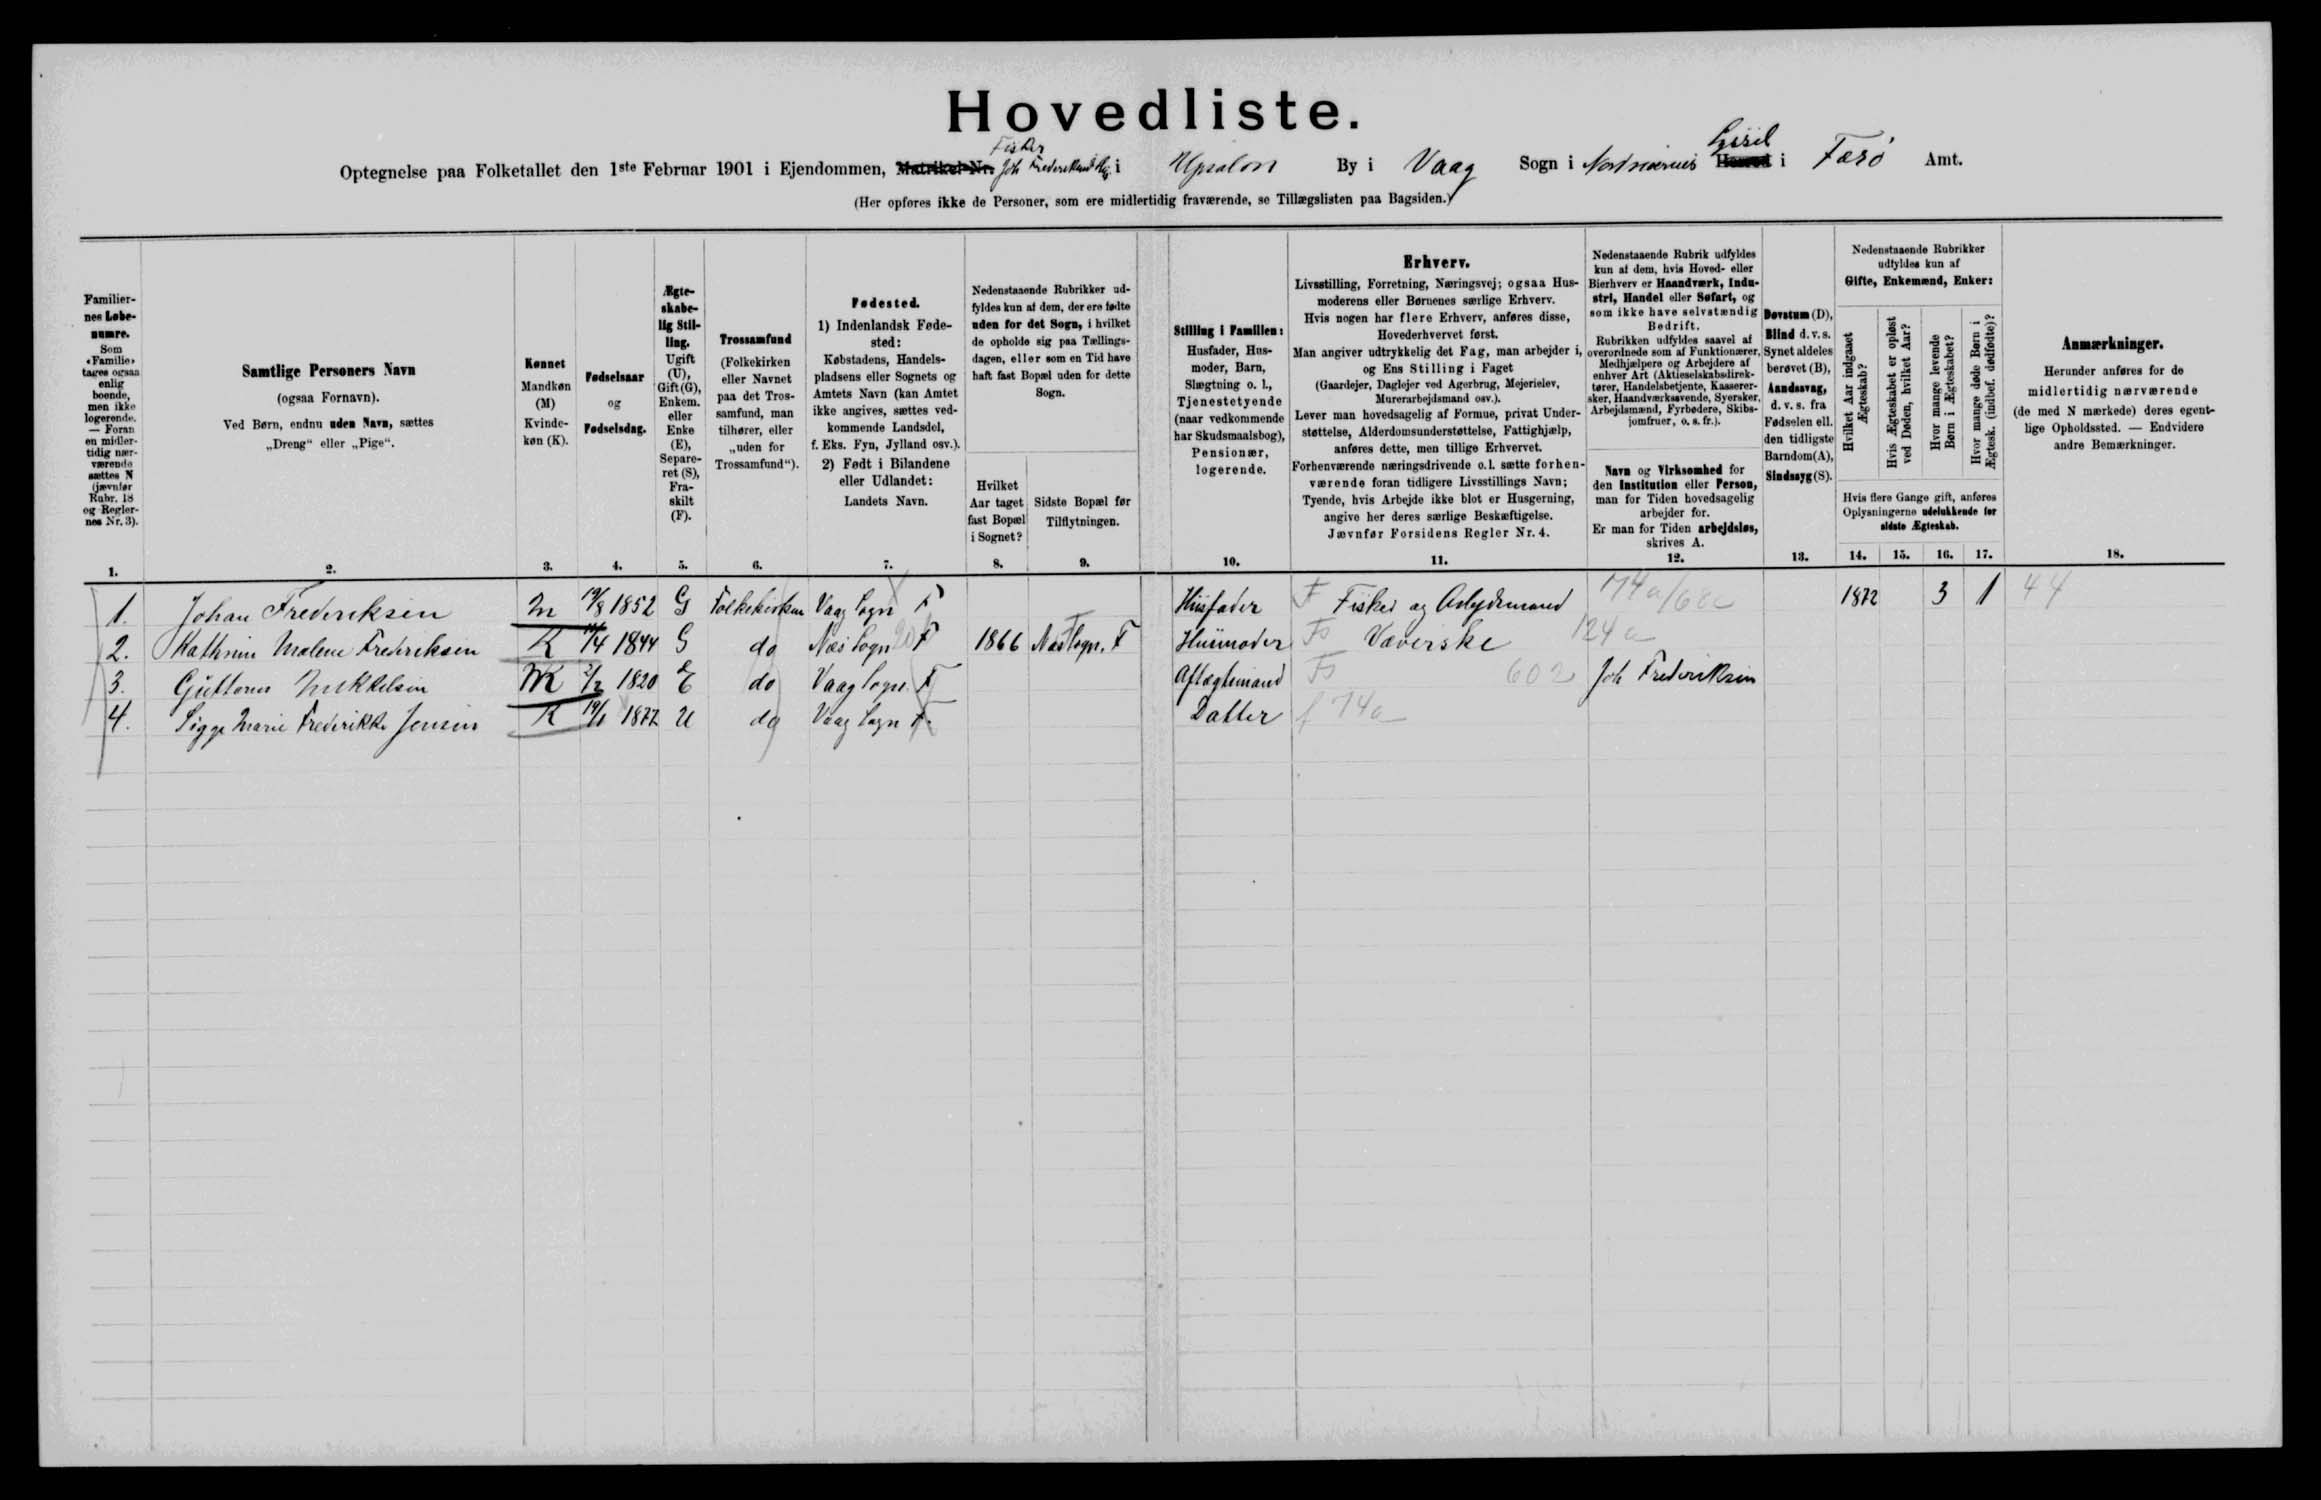 Hovedliste.
Fisker Gisil
Optegnelse paa Folketallet den 1ste Februar 1901 i Ejendommen, Matrikel-Nr. Joh i By i Vaag Sogn i Herred i Færø Amt.
(Her opføres ikke de Personer, som ere midlertidig fraværende, se Tillægslisten paa Bagsiden.)
Familier-
nes Løbe-
numre.
Som
«Familie»
tages ogsaa
enlig
boende,
men ikke
logerende.
— Foran
en midler-
tidig nær-
værende
sættes N
(jævnfør
Rubr. 18
og Regler-
nes Nr. 3).
1.
Samtlige Personers Navn
(ogsaa Fornavn).
Ved Børn, endnu uden Navn, sættes
„Dreng“ eller „Pige“.
2.
Kønnet
Mandkøn
(M)
Kvinde-
køn (K).
3.
Fødselsaar
og
Fødselsdag.
4.
Ægte-
skabe-
lig Stil-
ling.
Ugift
(U),
Gift (G),
Enkem.
eller
Enke
(E),
Separe-
ret (S),
Fra-
skilt
(F).
5.
Trossamfund
(Folkekirken
eller Navnet
paa det Tros-
samfund, man
tilhører, eller
„uden for
Trossamfund“).
6.
Fødested.
1) Indenlandsk Føde-
sted:
Købstadens, Handels-
pladsens eller Sognets og
Amtets Navn (kan Amtet
ikke angives, sættes ved-
kommende Landsdel,
f. Eks. Fyn, Jylland osv.).
2) Født i Bilandene
eller Udlandet:
Landets Navn.
7.
Nedenstaaende Rubrikker ud-
fyldes kun af dem, der ere fødte
uden for det Sogn, i hvilket
de opholde sig paa Tællings-
dagen, eller som en Tid have
haft fast Bopæl uden for dette
Sogn.
Hvilket
Aar taget
fast Bopæl
i Sognet?
8.
Sidste Bopæl før
Tilflytningen.
9.
Stilling i Familien:
Husfader, Hus-
moder, Barn,
Slægtning o. l.,
Tjenestetyende
(naar vedkommende
har Skudsmaalsbog),
Pensionær,
logerende.
10.
Erhverv.
Livsstilling, Forretning, Næringsvej; ogsaa Hus-
moderens eller Børnenes særlige Erhverv.
Hvis nogen har flere Erhverv, anføres disse,
Hovederhvervet først.
Man angiver udtrykkelig det Fag, man arbejder i,
og Ens Stilling i Faget
(Gaardejer, Daglejer ved Agerbrug, Mejerielev,
Murerarbejdsmand osv.).
Lever man hovedsagelig af Formue, privat Under-
støttelse, Alderdomsunderstøttelse, Fattighjælp,
anføres dette, men tillige Erhvervet.
Forhenværende næringsdrivende o. l. sætte forhen-
værende foran tidligere Livsstillings Navn;
Tyende, hvis Arbejde ikke blot er Husgerning,
angive her deres særlige Beskæftigelse.
Jævnfør Forsidens Regler Nr. 4.
11.
Nedenstaaende Rubrik udfyldes
kun af dem, hvis Hoved- eller
Bierhverv er Haandværk, Indu-
stri, Handel eller Søfart, og
som ikke have selvstændig
Bedrift.
Rubrikken udfyldes saavel af
overordnede som af Funktionærer,
Medhjælpere og Arbejdere af
enhver Art (Aktieselskabsdirek-
tører, Handelsbetjente, Kasserer-
sker, Haandværkssvende, Syersker,
Arbejdsmænd, Fyrbødere, Skibs-
jomfruer, o. s. fr.).
Navn og Virksomhed for
den Institution eller Person,
man for Tiden hovedsagelig
arbejder for.
Er man for Tiden arbejdsløs,
skrives A.
12.
Døvstum (D),
Blind d. v. s.
Synet aldeles
berøvet (B),
Aandssvag,
d. v. s. fra
Fødselen ell.
den tidligste
Barndom (A),
Sindssyg (S).
13.
Nedenstaaende Rubrikker
udfyldes kun af
Gifte, Enkemænd, Enker:
Hvilket Aar indgaaet
Ægteskab?
Hvis Ægteskabet er opløst
ved Døden, hvilket Aar?
Hvor mange levende
Børn i Ægteskabet?
Hvor mange døde Børn i
Ægtesk. (indbef. dødfødte)?
Hvis flere Gange gift, anføres
Oplysningerne udelukkende for
sidste Ægteskab.
14. 15. 16. 17.
Anmærkninger.
Herunder anføres for de
midlertidig nærværende
(de med N mærkede) deres egent-
lige Opholdssted. — Endvidere
andre Bemærkninger.
18.
1. Johan Frederiksen M 19/8 1852 G Folkekirken Vaag Sogn F Husfader F Fisker og Arbejdsmand 74a/68c 1872 3 1 44
2. Kathrine Malene Frederiksen K 11/4 1844 G do Næs Sogn F 1866 Næs Sogn. F Husmoder Fs Væverske 124a
3. Mikkelsen 2/2 1820 E do Vaag Sogn. F Aftægtsmand Fs 602 Joh Frederiksen
4. Sigga Marie Frederikke Jensen K 19/1 1877 U do Vaag Sogn F. Datter f 74a